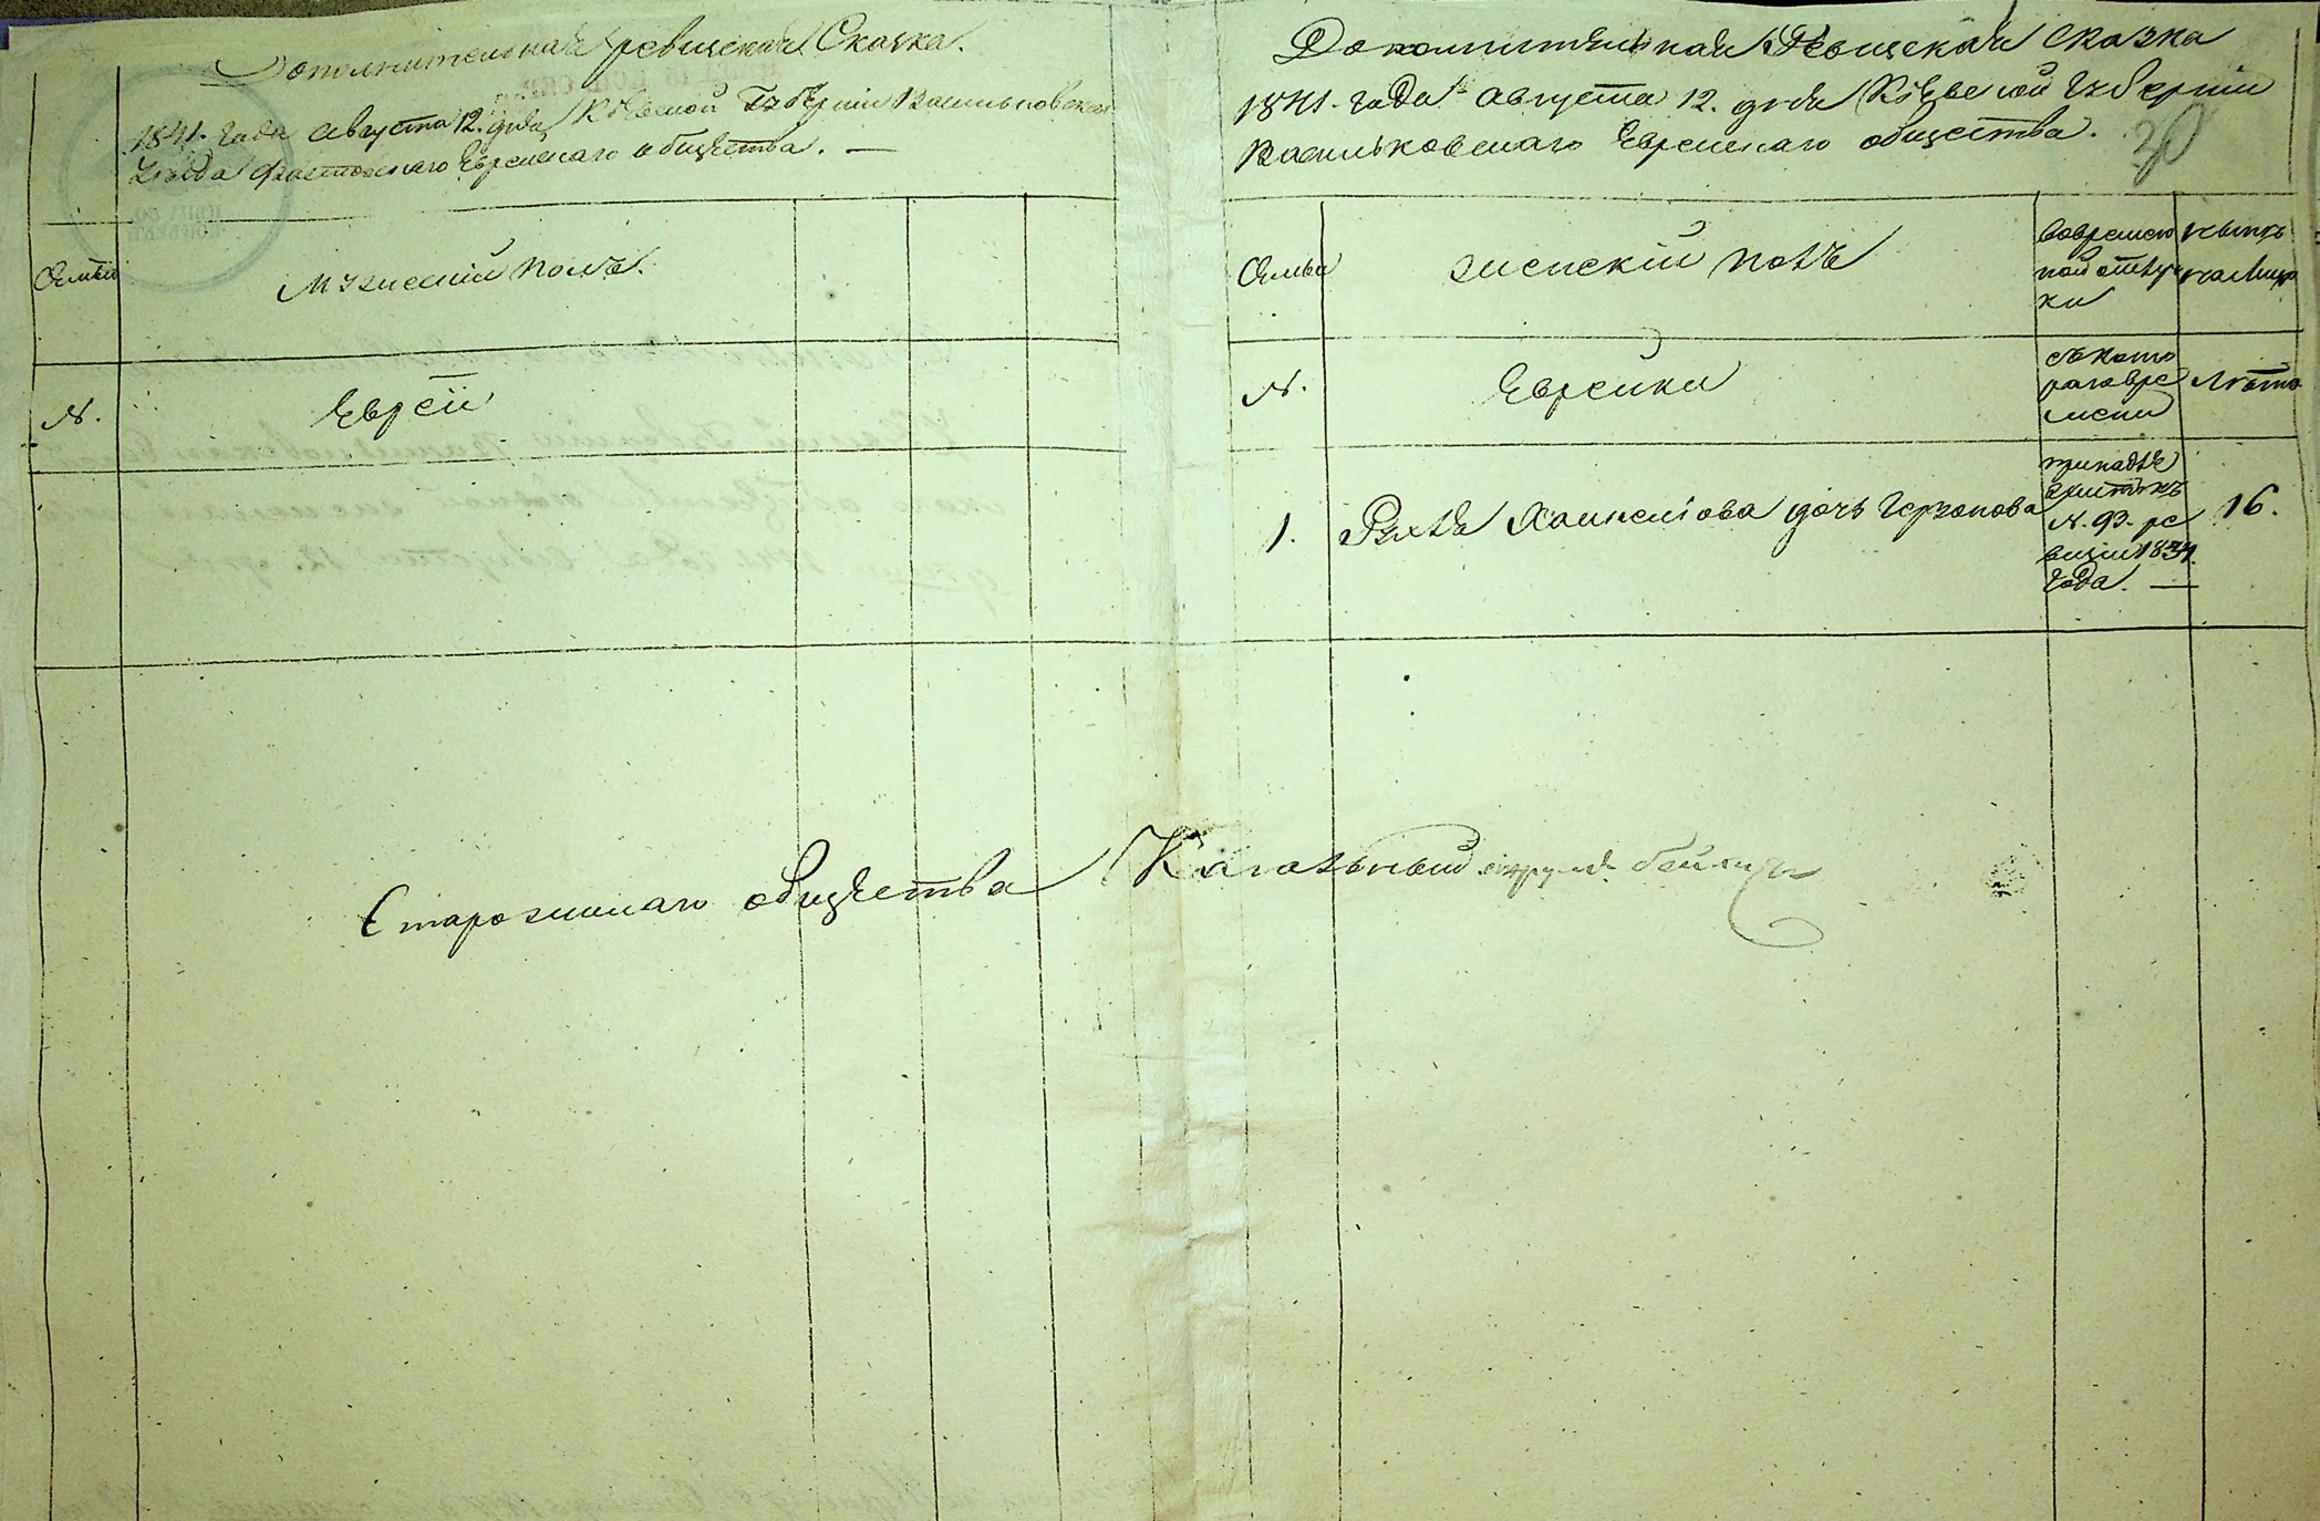 Дополнительная ревизская Сказка.
1841. года августа 12. дня Кіевской Губерніи Васильковскаго
Уезда Фастовскаго Еврейскаго общества. —
Семьи
мужеский полъ.
N.
Евреи
Дополнительная Ревизская сказка
1841. года августа 12. дня Кіевской Губерніи
Васильковскаго Еврейскаго общества.
30
Семьи
женский полъ
Вовремен
ной отлуч
ки
Ныне
налицо
N.
Еврейки
съ кото
раго вре
мени
Лета
1.
Рухля Хаимова дочь Герзонова
N. 93. ре
визіи 1834.
года. —
16.
Старозащаго общества Кагальный